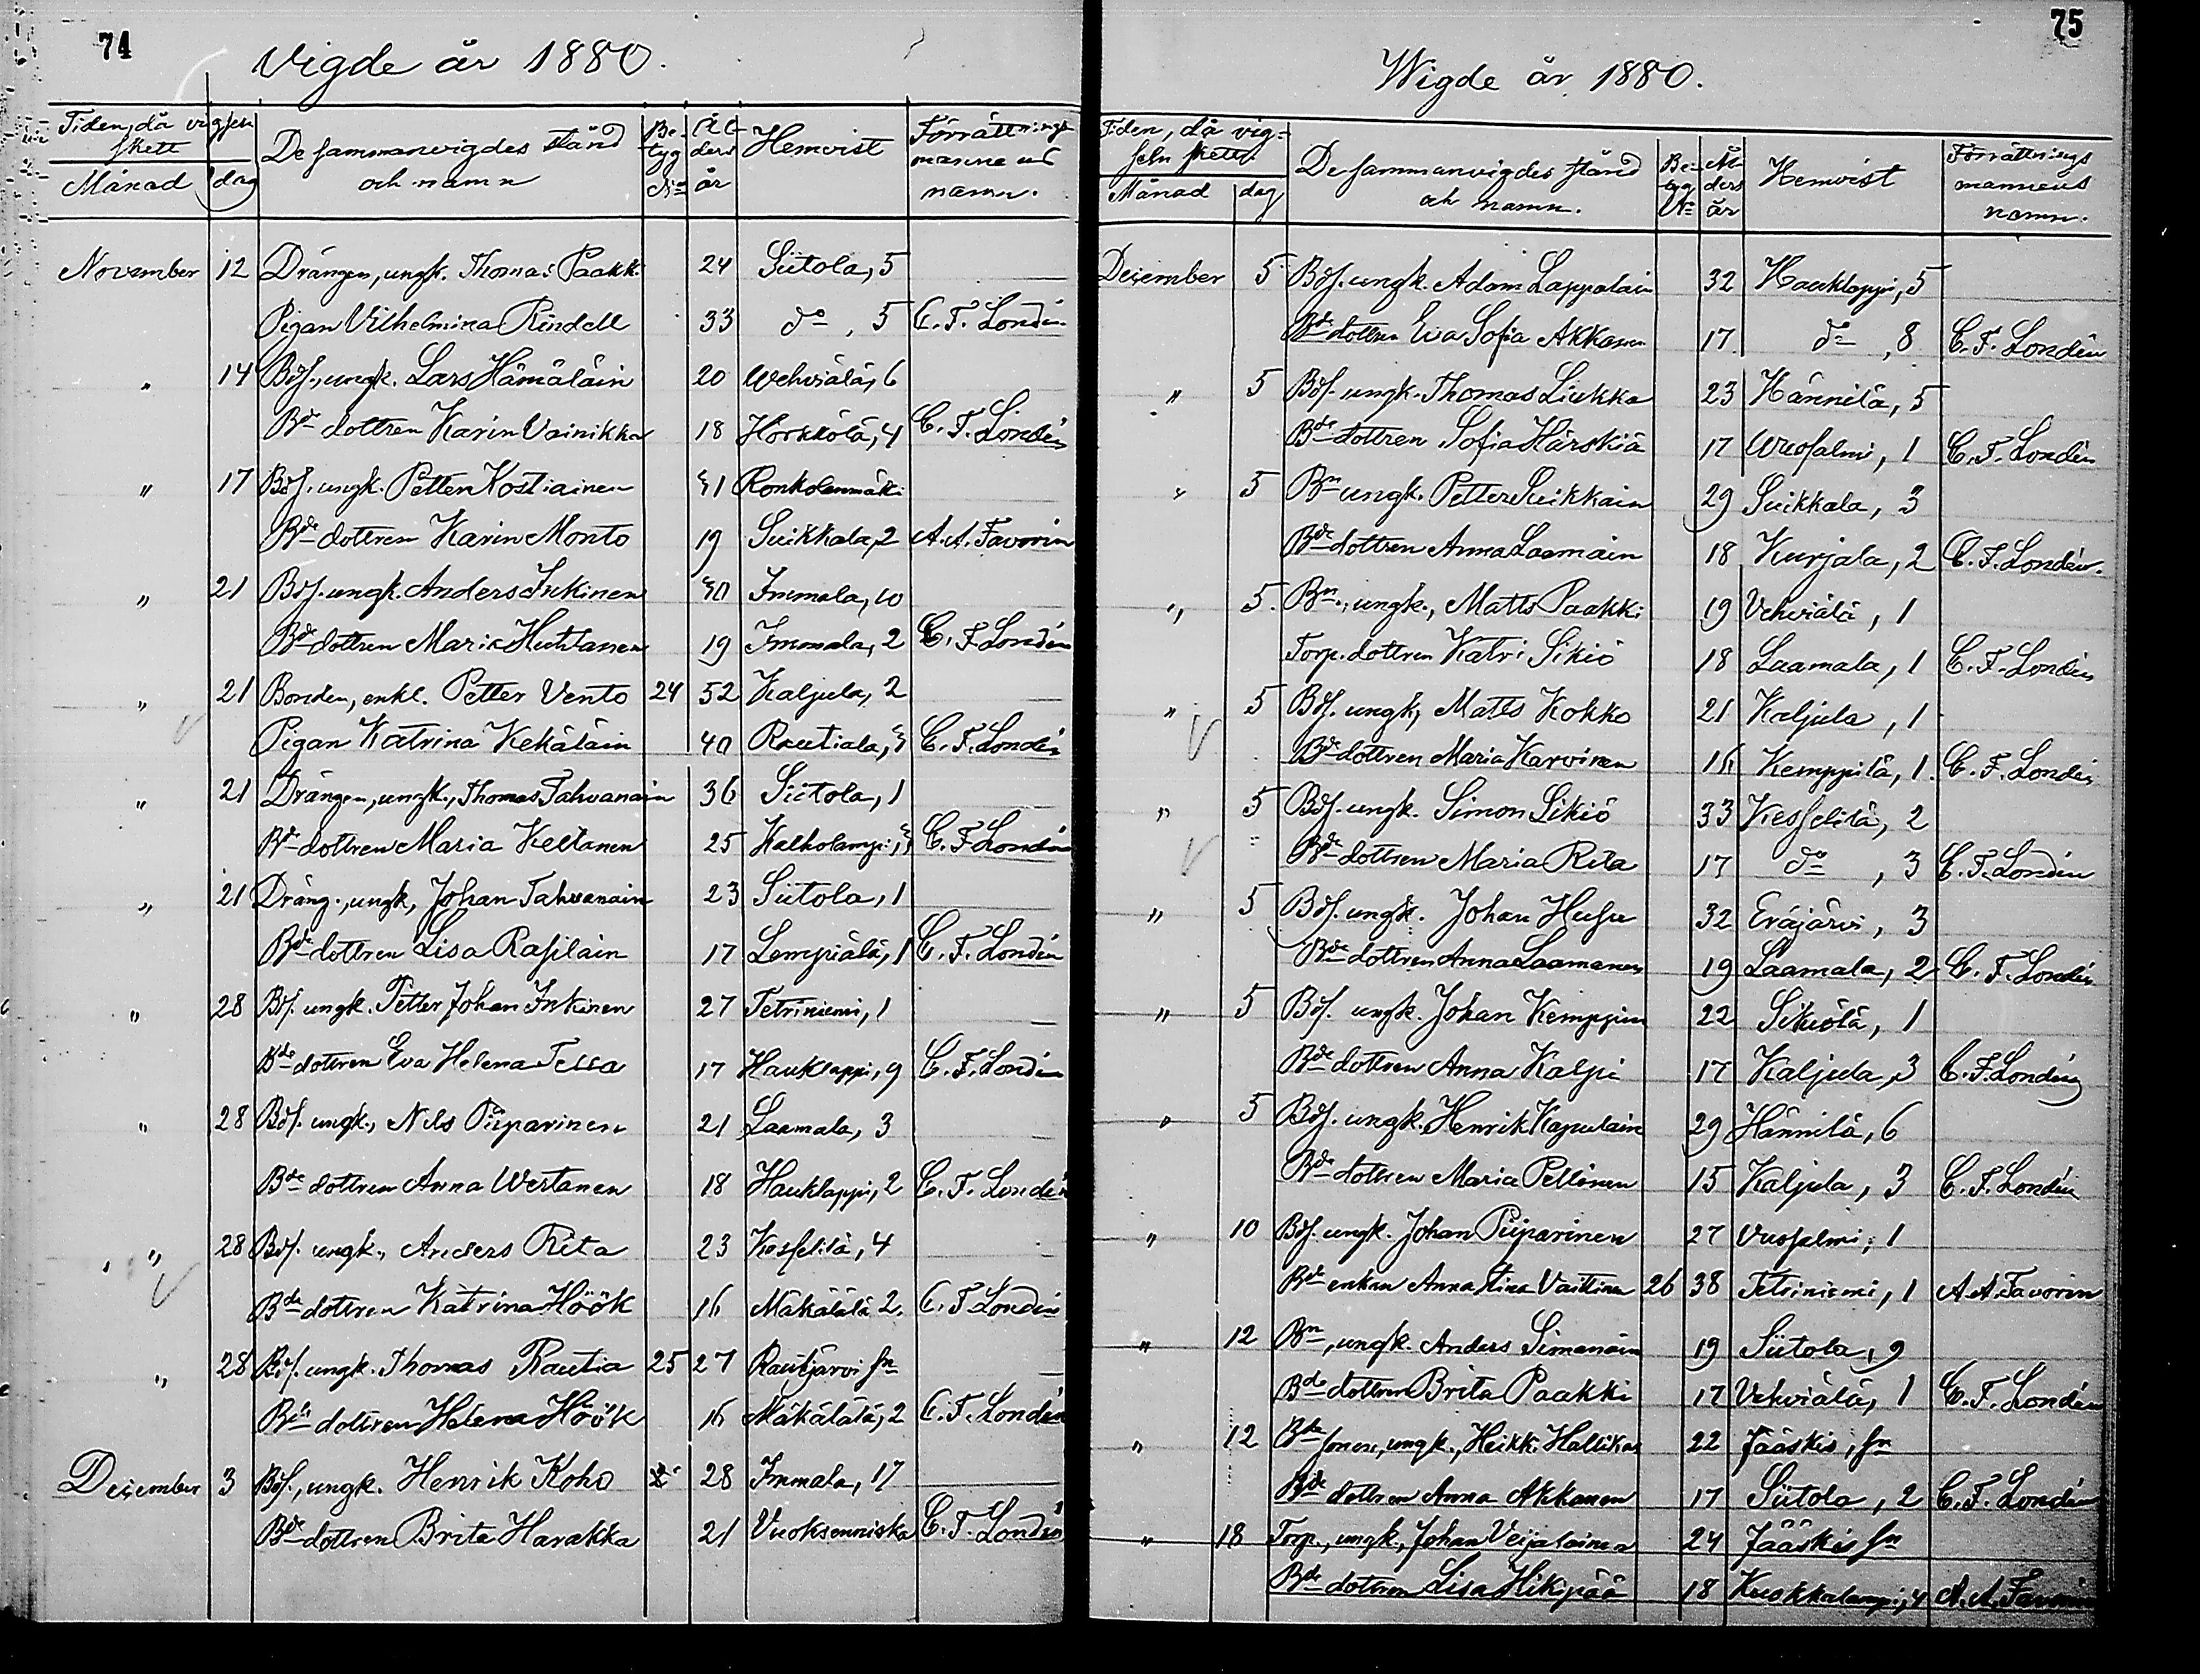 74
Vigde år 1880.
Tiden, då vigseln skett
Månad dag
De sammanvigdes stånd och namn
Betyg No
Ålders år
Hemvist
Förrättnings mannens namn.
November 12 Drängen, ungk. Thomas Paakki 24 Siitola, 5
Pigan Vilhelmina Rindell 33 do , 5 C. F. Londén
" 14 Bds., ungk. Lars Hämäläin 20 Wehviälä, 6
Bde dottren Karin Vainikka 18 Hörkkölä, 4 C. F. Londén
" 17 Bds. ungk. Petter Kostiainen Ronkolenmäki
Bde dottren Karin Monto 19 Suikkala, 2 A. A. Favorin
" 21 Bds. ungk. Anders Inkinen Immala, 10
Bde dottren Maria Huhtanen 19 Immala, 2 C. F. Londén
" 21 Bonden, enkl. Petter Vento 24 52 Kaljula, 2
Pigan Katrina Kekäläin 40 Rautiala, C. F. Londén
" 21 Drängen, ungk., Thomas Tahvanain 36 Siitola, 1
Bde dottren Maria Keltanen 25 Kalholampi, C. F. Londén
" 21 Dräng., ungk, Johan Tahvanain 23 Siitola, 1
Bde dottren Lisa Rasilain 17 Lempiälä, 1 C. F. Londén
" 28 Bds. ungk. Petter Johan Inkinen 27 Tetriniemi, 1
Bde dottren Eva Helena Tella 17 Hauklappi, 9 C. F. Londén
" 28 Bds. ungk., Nils Piiparinen 21 Laamala, 3
Bde dottren Anna Wertanen 18 Hauklappi, 2 C. F. Londén
" 28 Bds. ungk., Anders Rita 23 Kesselilä, 4
Bde dottren Katrina Höök 16 Mäkälälä 2. C. F. Londén
" 28 Bds. ungk. Thomas Rautia 25 27 Rautjärvi sn
Bde dottren Helena Höök 16 Mäkälälä, 2 C. F. Londén
December 3 Bds., ungk. Henrik Koho 28 Immala, 17
Bde dottren Brita Harakka 21 Vuoksenniska C. F. Londén
75
Wigde år 1880.
Tiden, då vigseln skett.
Månad dag
De sammanvigdes stånd och namn.
Betyg No
Ålders år
Hemvist
Förrättnings mannens namn.
December 5 Bds. ungk. Adam Lappalain 32 Hauklappi, 5
Bde dottren Eva Sofia Akkanen 17 do , 8 C. F. Londén
" 5 Bds. ungk. Thomas Liukka 23 Hännilä, 5
Bde dottren Sofia Härskiä 17 Wuosalmi, 1 C. F. Londén
" 5 Bn ungk. Petter Suikkain 29 Suikkala, 3
Bde dottren Anna Laamain 18 Kurjala, 2 C. F. Londén.
" 5. Bn., ungk., Matts Paakki 19 Vehviälä, 1
Torp. dottren Katri Sikiö 18 Laamala, 1 C. F. Londén
" 5 Bds. ungk, Matts Kokko 21 Kaljula, 1
Bde dottren Maria Karvinen 16 Kemppilä, 1. C. F. Londén
" 5 Bds. ungk. Simon Sikiö 33 Kesselilä, 2
Bde dottren Maria Rita 17 do , 3 C. F. Londén
" 5 Bds. ungk. Johan Husu 32 Eräjärvi, 3
Bde dottren Anna Laamanen 19 Laamala, 2 C. F. Londén
" 5 Bds. ungk. Johan Kemppin 22 Sikiölä, 1
Bde dottren Anna Kalpi 17 Kaljula, 3 C. F. Londén
" 5 Bds. ungk. Henrik Kapulain 29 Hännilä, 6
Bde dottren Maria Pellinen 15 Kaljula, 3 C. F. Londén
" 10 Bds. ungk. Johan Piiparinen 27 Vuosalmi, 1
Bde enkan Anna Stina Vaittinen 26 38 Tetriniemi, 1 A. A. Favorin
" 12 Bn, ungk. Anders Simanain 19 Siitola, 9
Bde dottren Brita Paakki 17 Vehviälä, 1 C. F. Londén
" 12 Bde sonen, ungk., Heikki Hallikas 22 Jääskis, sn
Bde dottren Anna Akkanen 17 Siitola, 2 C. F. Londén
" 18 Torp., ungk., Johan Veijalainen 24 Jääskis sn
Bde dottren Lisa Hikipää 18 Kuokkalampi, 4 A. A. Favorin